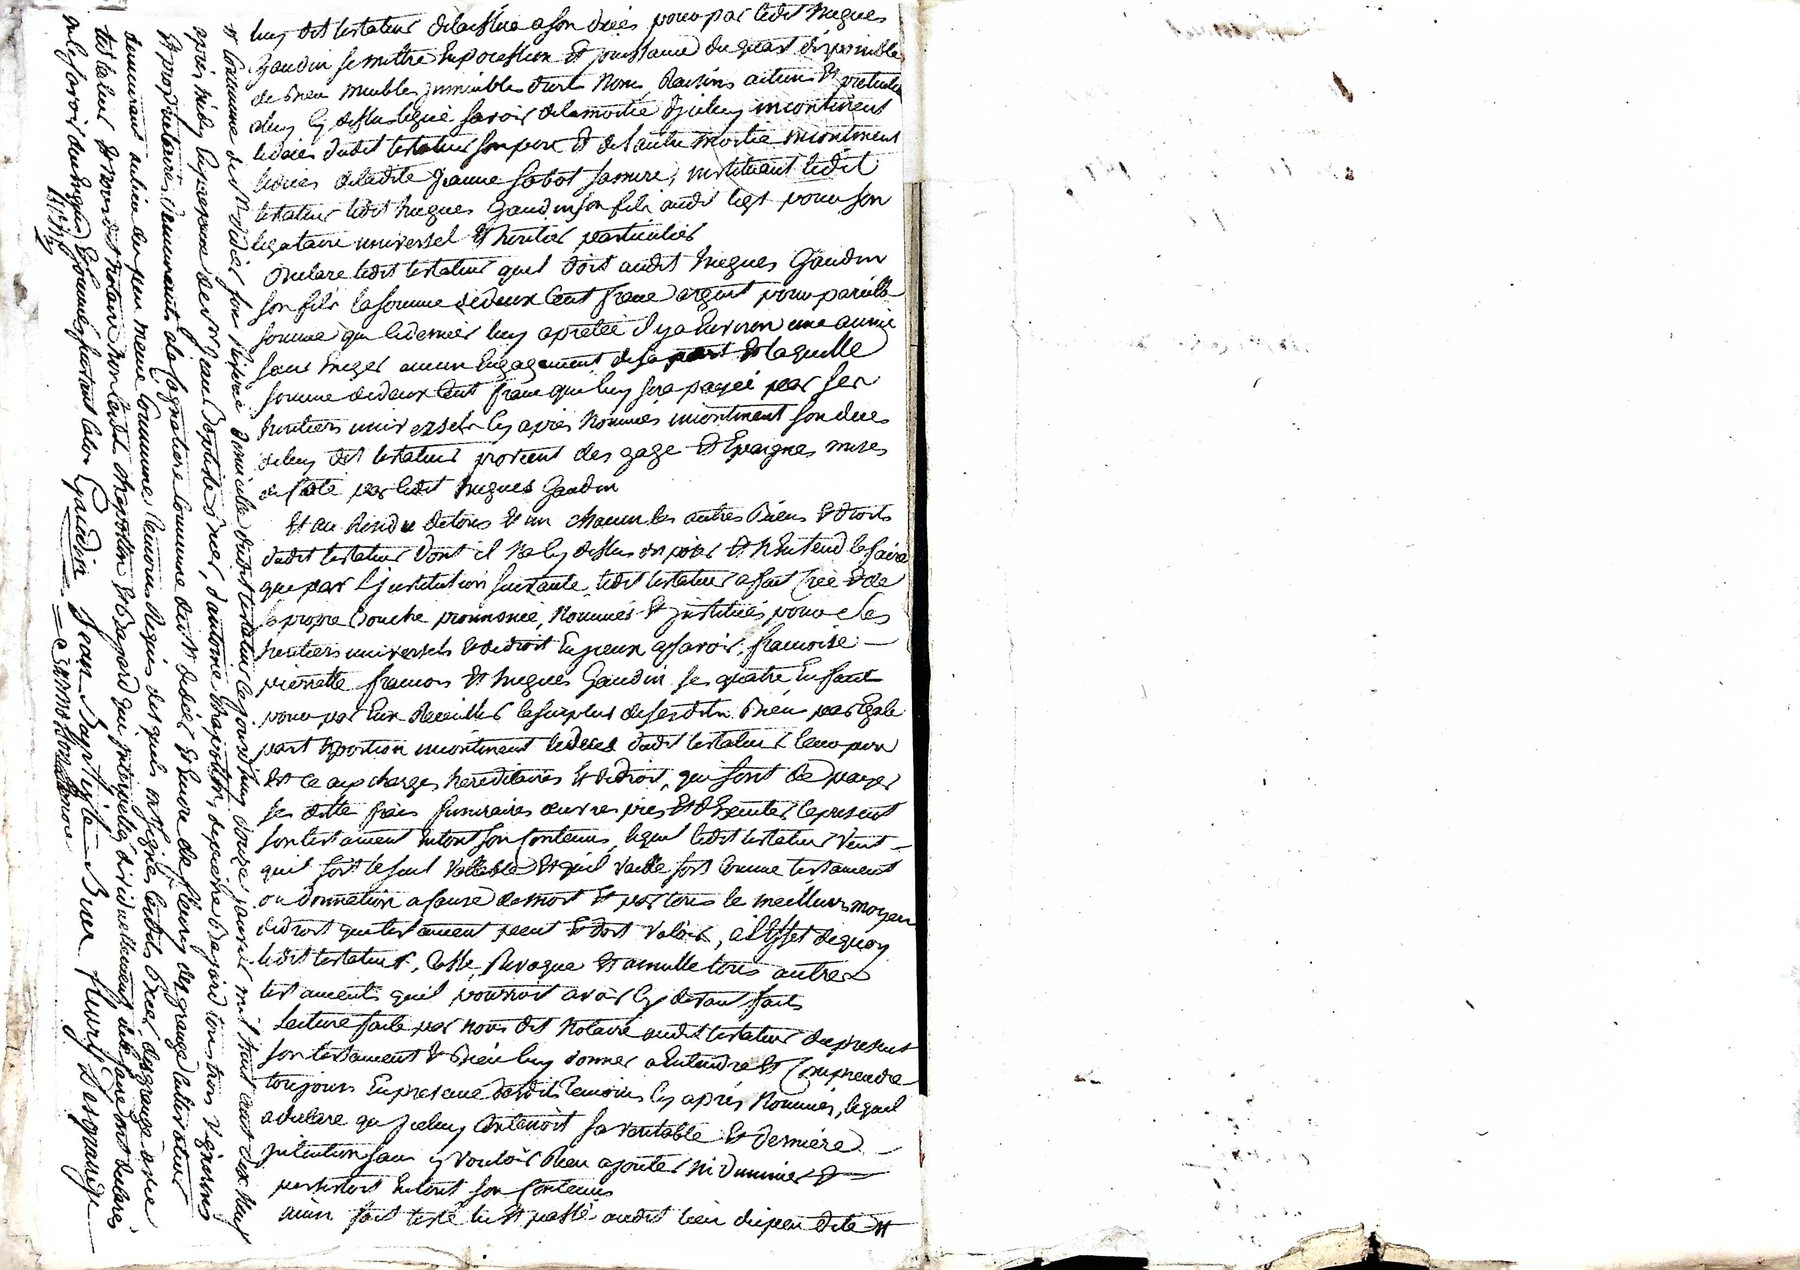 luy dit testateur delaissée a son decés pour par ledit hugues
Gaudin se mettre en possession et jouissance du quart disponible
de bien meubles immeubles droits noms, raisins actions et pretentions
luy cy dessus legué savoir de la moitié d'jceluy incontinent
le deces dudit testateur son pere et de l'autre moitié incontinent
le deces de ladite Jeanne Sabot sa mere, instituant ledit
testateur ledit hugues Gaudin son fils audit legs pour son
legataire universel et heritier particulier
Declare ledit testateur quil doit audit hugues Gaudin
son fils la somme de deux Cent franc argent pour pareille
somme que le dernier luy a pretée il y a Environ une année
sans Exiger aucun Engagement de sa part et laquelle
somme de deux Cent franc qui luy sera payée par ses
heritiers universels cy après nommés incontinent son deces
de luy dit testateur provient des gage et Epargnes mises
de Coté par ledit hugues Gaudin
Et au Residu de tous et un chacun les autres Biens et droits
dudit testateur dont il n'a cy dessus disposé et n'Entend le faire
que par l'jnstitution suivante, ledit testateur a fait créé et de
sa propre Bouche prononcé, nommés et jnstitués pour ses
heritiers universels et de droit En jceux asavoir, francoise
pierrette francois et hugues Gaudin ses quatre Enfants
pour par Eux Receuillir le surplus de sesdits Bien par Egale
part et portion incontinent le deces dudit testateur leur pere
Et ce aux charges hereditaires et de droit, qui sont de payer
ses dette frais funeraires œuvres pies et d'Executer le present
son testament En tout son Contenus, lequel ledit testateur veut
quil soit le seul Vallable et quil vaille soit Comme testament
ou donnation a Cause de mort et par tous le meilleurs moyen
de droit que testament peut et doit valoir, a l'Effet de quoy
ledit testateur, Casse, Revoque et annulle tous autres
testaments quil pourroit avoir Cy devant faits
Lecture faite par nous dit Notaire audit testateur du present
son testament et Bien luy donner a Entendre et Comprendre
toujours En presence desdits temoins Cy après Nommés, lequel
a declaré que jceluy Contenoit sa veritable et derniere
jntention sans y vouloir Rien ajouter ni diminuer et
persistoit En tout son Contenus
ainsi fait testé lu et passé audit lieu du peu dite
Commune de St Didier sur Riviere domicile dudit testateur Cejourd'huy douze janvier mil huit Cent dix Neuf
après midy En presence de Sr Jean Baptiste Brier, d'antoine Chapotton, de pierre Begard tous trois vignerons
Et proprietaires, demeurants a la Commune de St Didier Et sieur de fleury desgrange cultivateur
demeurant au lieu du peu meme Commune, temoins Requis desquels ont signés lesdits Brier, desgrange avec
testateur et nous dit Notaire Non lesdits Chapotton et Begard qui jnterpellés jndividuellement de le faire ont declarés
ne le savoir de ce Enquis Et sommés suivant la loy Gaudin Jean Baptiste Brier fleury Desgrange